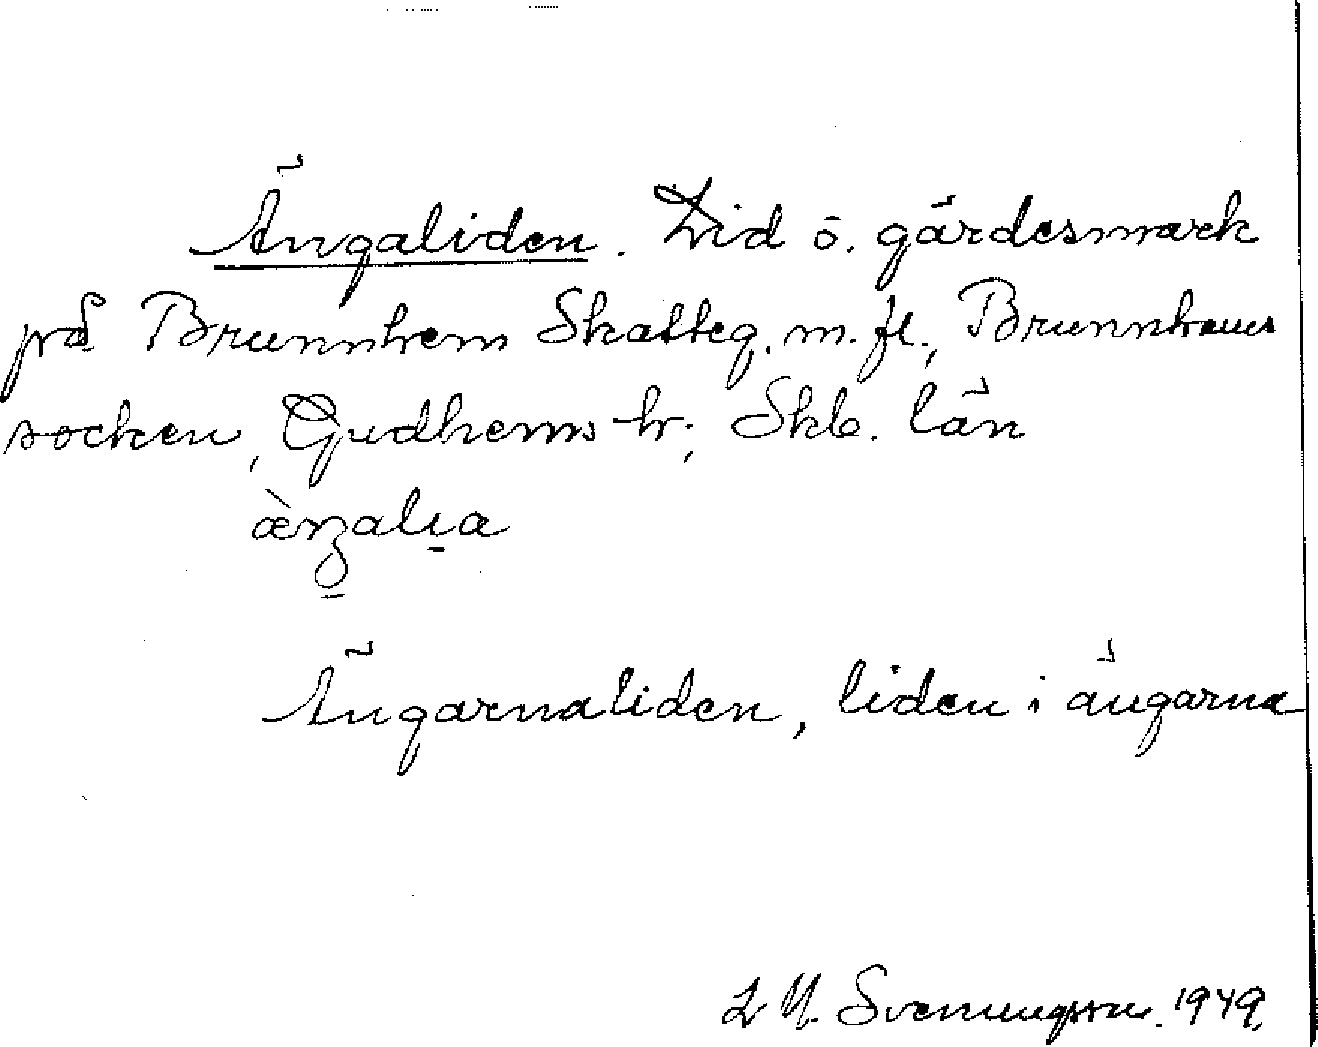 Ängaliden. Lid ö. gärdesmark
på Brunnhem Skatteg. m. fl., Brunnhems
socken, Gudhems hr, Skb. län
Ängarnaliden, liden i ängarna
L M. Svenungsson. 1949.